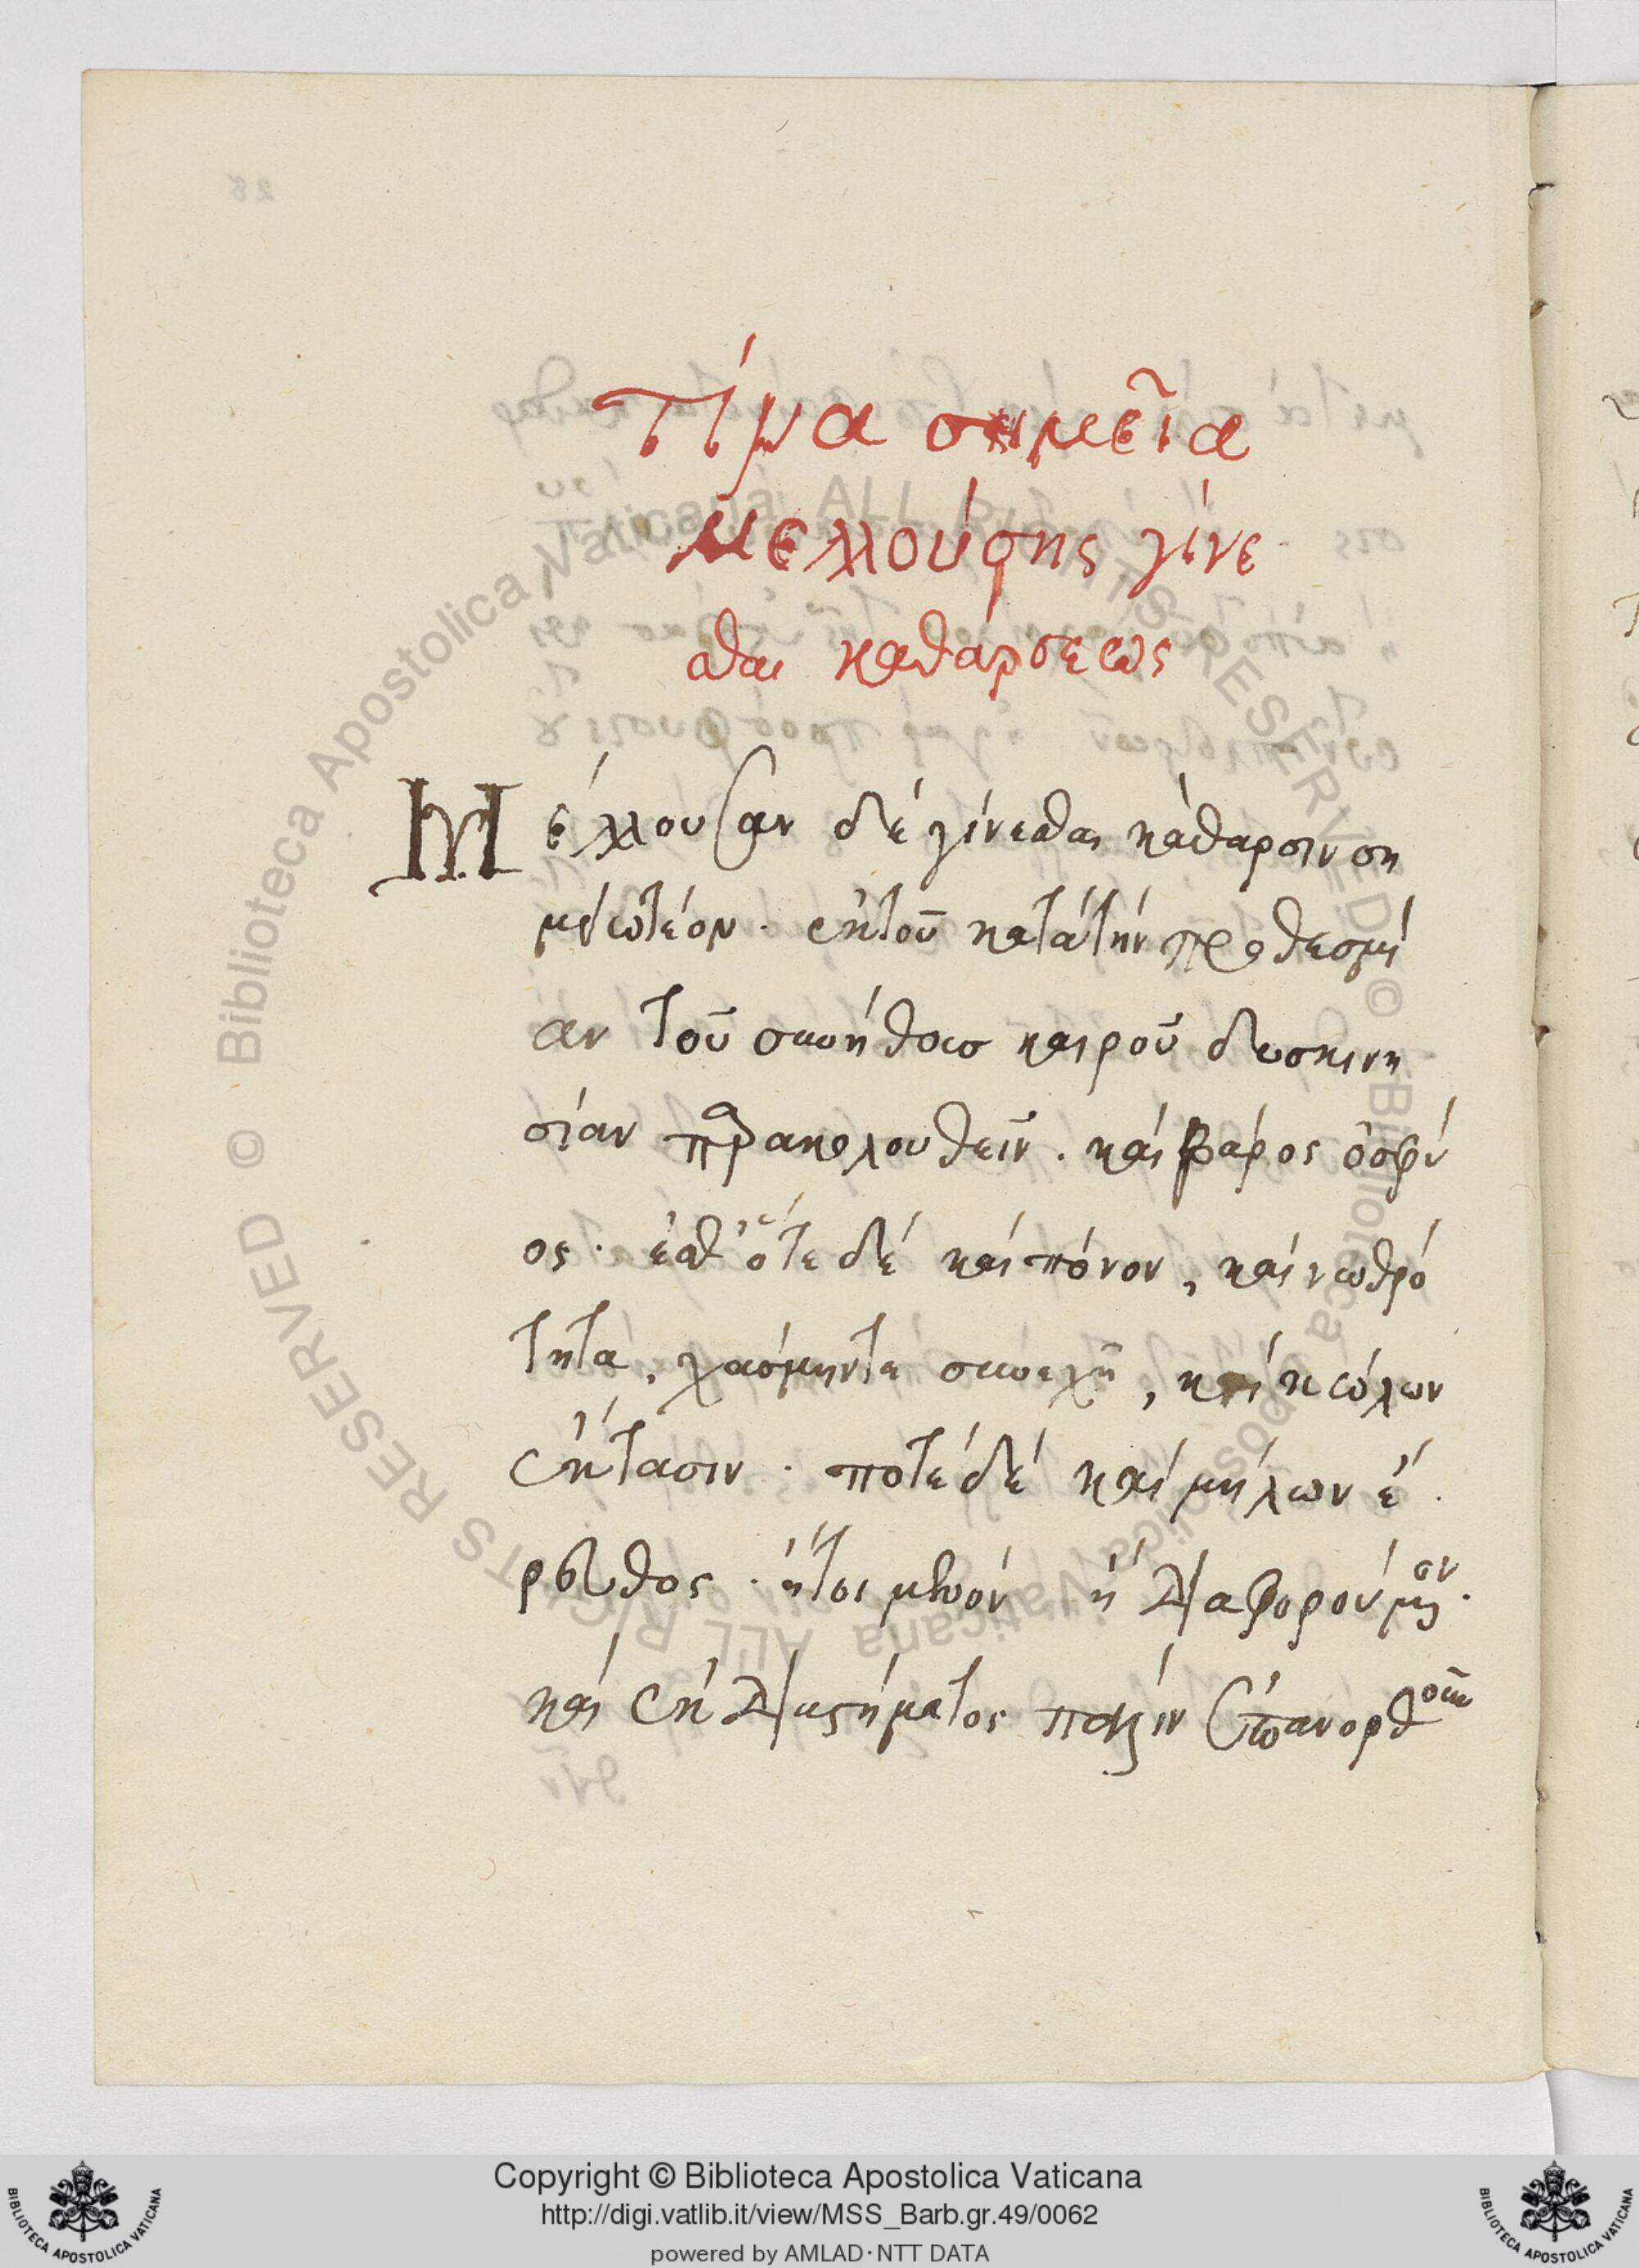 Τίνα σημεῖα
μελλούσης γίνε
σθαι καθάρσεως
Μέλλουσαν δὲ γίνεσθαι κάθαρσιν ση
μειωτέον. ἐκ τοῦ κατὰ τὴν προθεσμί
αν τοῦ συνήθους καιροῦ δυσκινη
σίαν παρακολουθεῖν. καὶ βάρος ὀσφύ
ος. ἐσθ' ὅτε δὲ καὶ πόνον, καὶ νωθρό
τητα, χάσμην τε συνεχῆ, καὶ κώλων
ἔκτασιν. ποτὲ δὲ καὶ μήλων ἔ
ρευθος. ἤτοι μένον ἢ διαφορούμενον.
καὶ ἐκ διαστήματος πάλιν
28
© Biblioteca Apostolica Vaticana ALL RIGHTS RESERVED © Biblioteca Apostolica Vaticana ALL RIGHTS RESERVED
Copyright © Biblioteca Apostolica Vaticana
http://digi.vatlib.it/view/MSS_Barb.gr.49/0062
powered by AMLAD·NTT DATA
BIBLIOTECA APOSTOLICA VATICANA
BIBLIOTECA APOSTOLICA VATICANA